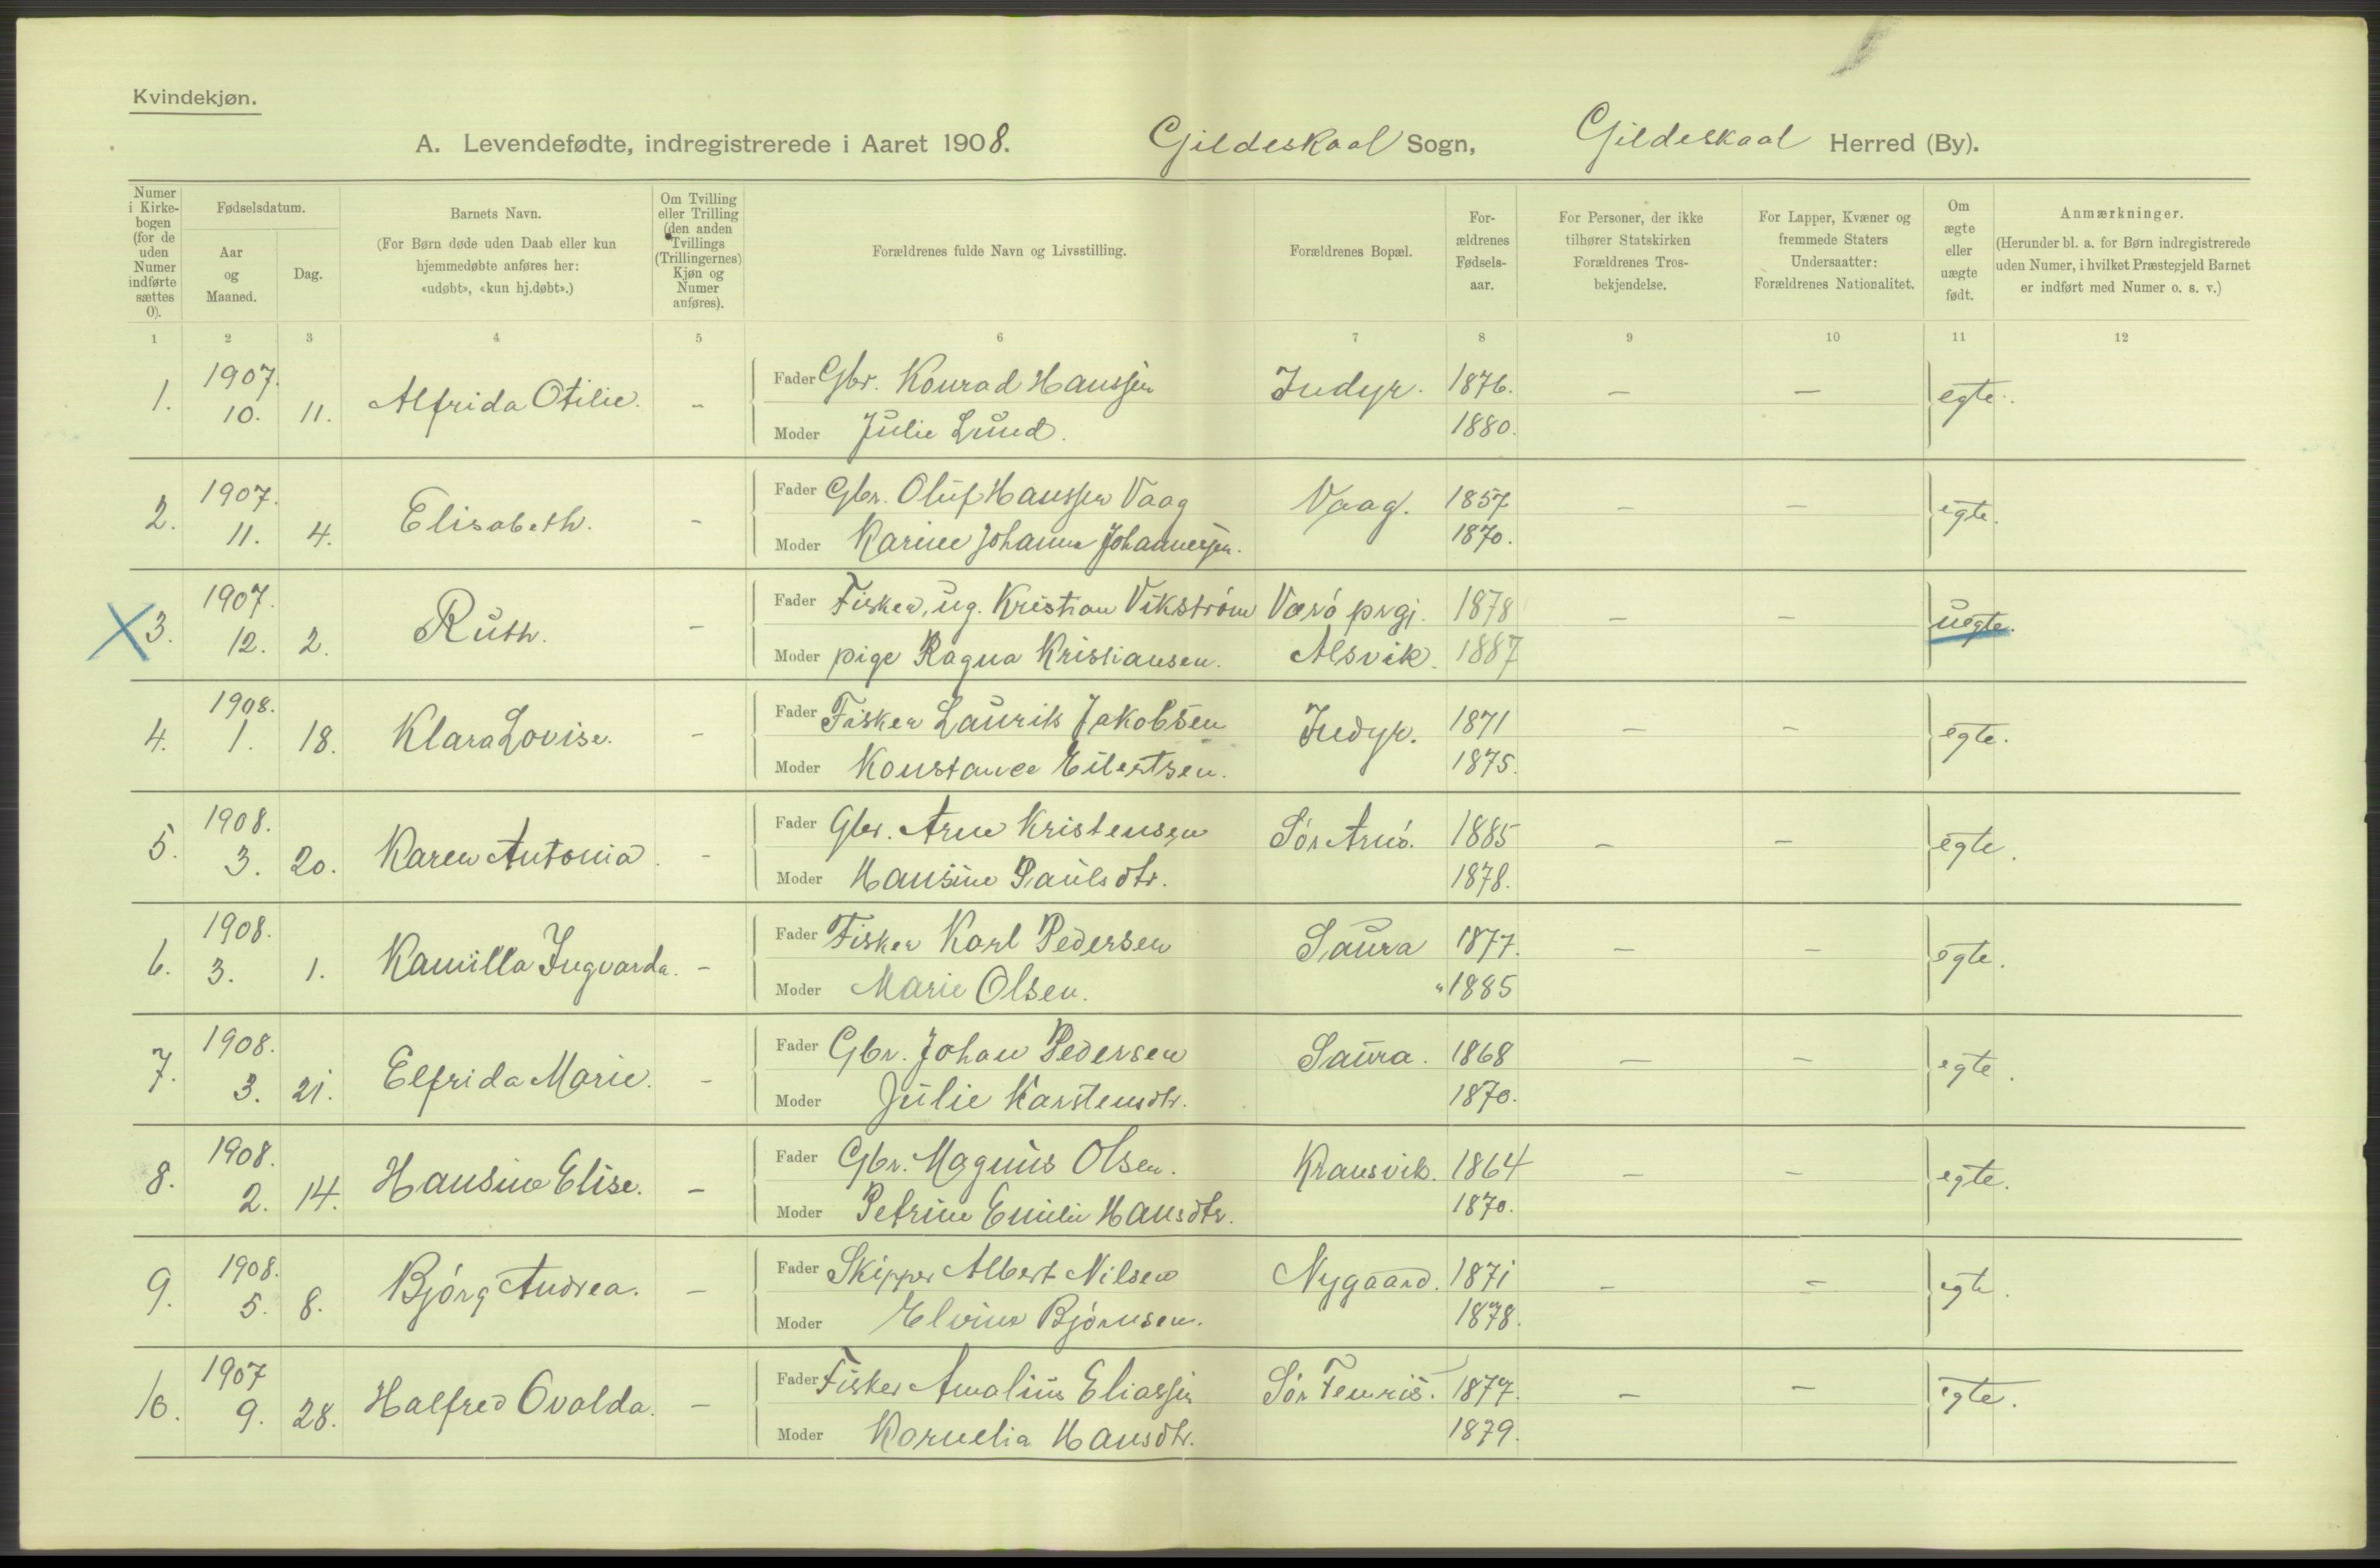 Kvindekjøn.
A. Levendefødte, indregistrerede i Aaret 1908. Gildeskaal Sogn, Gildeskaal Herred (By).
Numer i Kirke-bogen (for de uden Numer indførte sættes 0).
Fødselsdatum.
Aar og Maaned.
Dag.
Barnets Navn.
(For Børn døde uden Daab eller kun hjemmedøbte anføres her: «udøbt», «kun hj.døbt».)
Om Tvilling eller Trilling (den anden Tvillings (Trillingernes) Kjøn og Numer anføres).
Forældrenes fulde Navn og Livsstilling.
Forældrenes Bopæl.
For-ældrenes Fødsels-aar.
For Personer, der ikke tilhører Statskirken Forældrenes Tros-bekjendelse.
For Lapper, Kvæner og fremmede Staters Undersaatter: Forældrenes Nationalitet.
Om ægte eller uægte født.
Anmærkninger.
(Herunder bl. a. for Børn indregistrerede uden Numer, i hvilket Præstegjeld Barnet er indført med Numer o. s. v.)
1 2 3 4 5 6 7 8 9 10 11 12
1. 1907. 10. 11. Alfrida Otilie. - Fader Gbr. Konrad Hanssen Indyr. 1876. - - egte.
Moder Julie Lund. 1880.
2. 1907. 11. 4. Elisabeth. - Fader Gbr. Oluf Hanssen Vaag Vaag. 1857 - - egte.
Moder Karine Johanne Johannessen. 1870.
3. 1907. 12. 2. Ruth. - Fader Fisker, ug. Kristian Vikström Værö prgj. 1878 - - uegte.
Moder pige Ragna Kristiansen. Alsvik. 1887
4. 1908. 1. 18. Klara Lovise. - Fader Fisker Laurits Jakobsen Indyr. 1871 - - egte.
Moder Konstance Eilertsen. 1875.
5. 1908. 3. 20. Karen Antonia. - Fader Gbr. Arne Kristensen Sör Arnö. 1885 - - egte.
Moder Hansine Paulsdtr. 1878.
6. 1908. 3. 1. Kamilla Ingvarda. - Fader Fisker Karl Pedersen Saura 1877. - - egte.
Moder Marie Olsen. 1885
7. 1908. 3. 21. Elfrida Marie. - Fader Gbr. Johan Pedersen Saura. 1868 - - egte.
Moder Julie Karstensdtr. 1870.
8. 1908. 2. 14. Hansine Elise. - Fader Gbr. Magnus Olsen. Kransvik. 1864 - - egte.
Moder Petrine Emilie Hansdtr. 1870.
9. 1908. 5. 8. Björg Andrea. - Fader Skipper Albert Nilsen Nygaard. 1871 - - egte.
Moder Elvine Björnsen. 1878.
10. 1907 9. 28. Halfred Ovalda. - Fader Fisker Amalius Eliassen Sör Femris. 1877. - - egte.
Moder Kornelia Hansdtr. 1879.